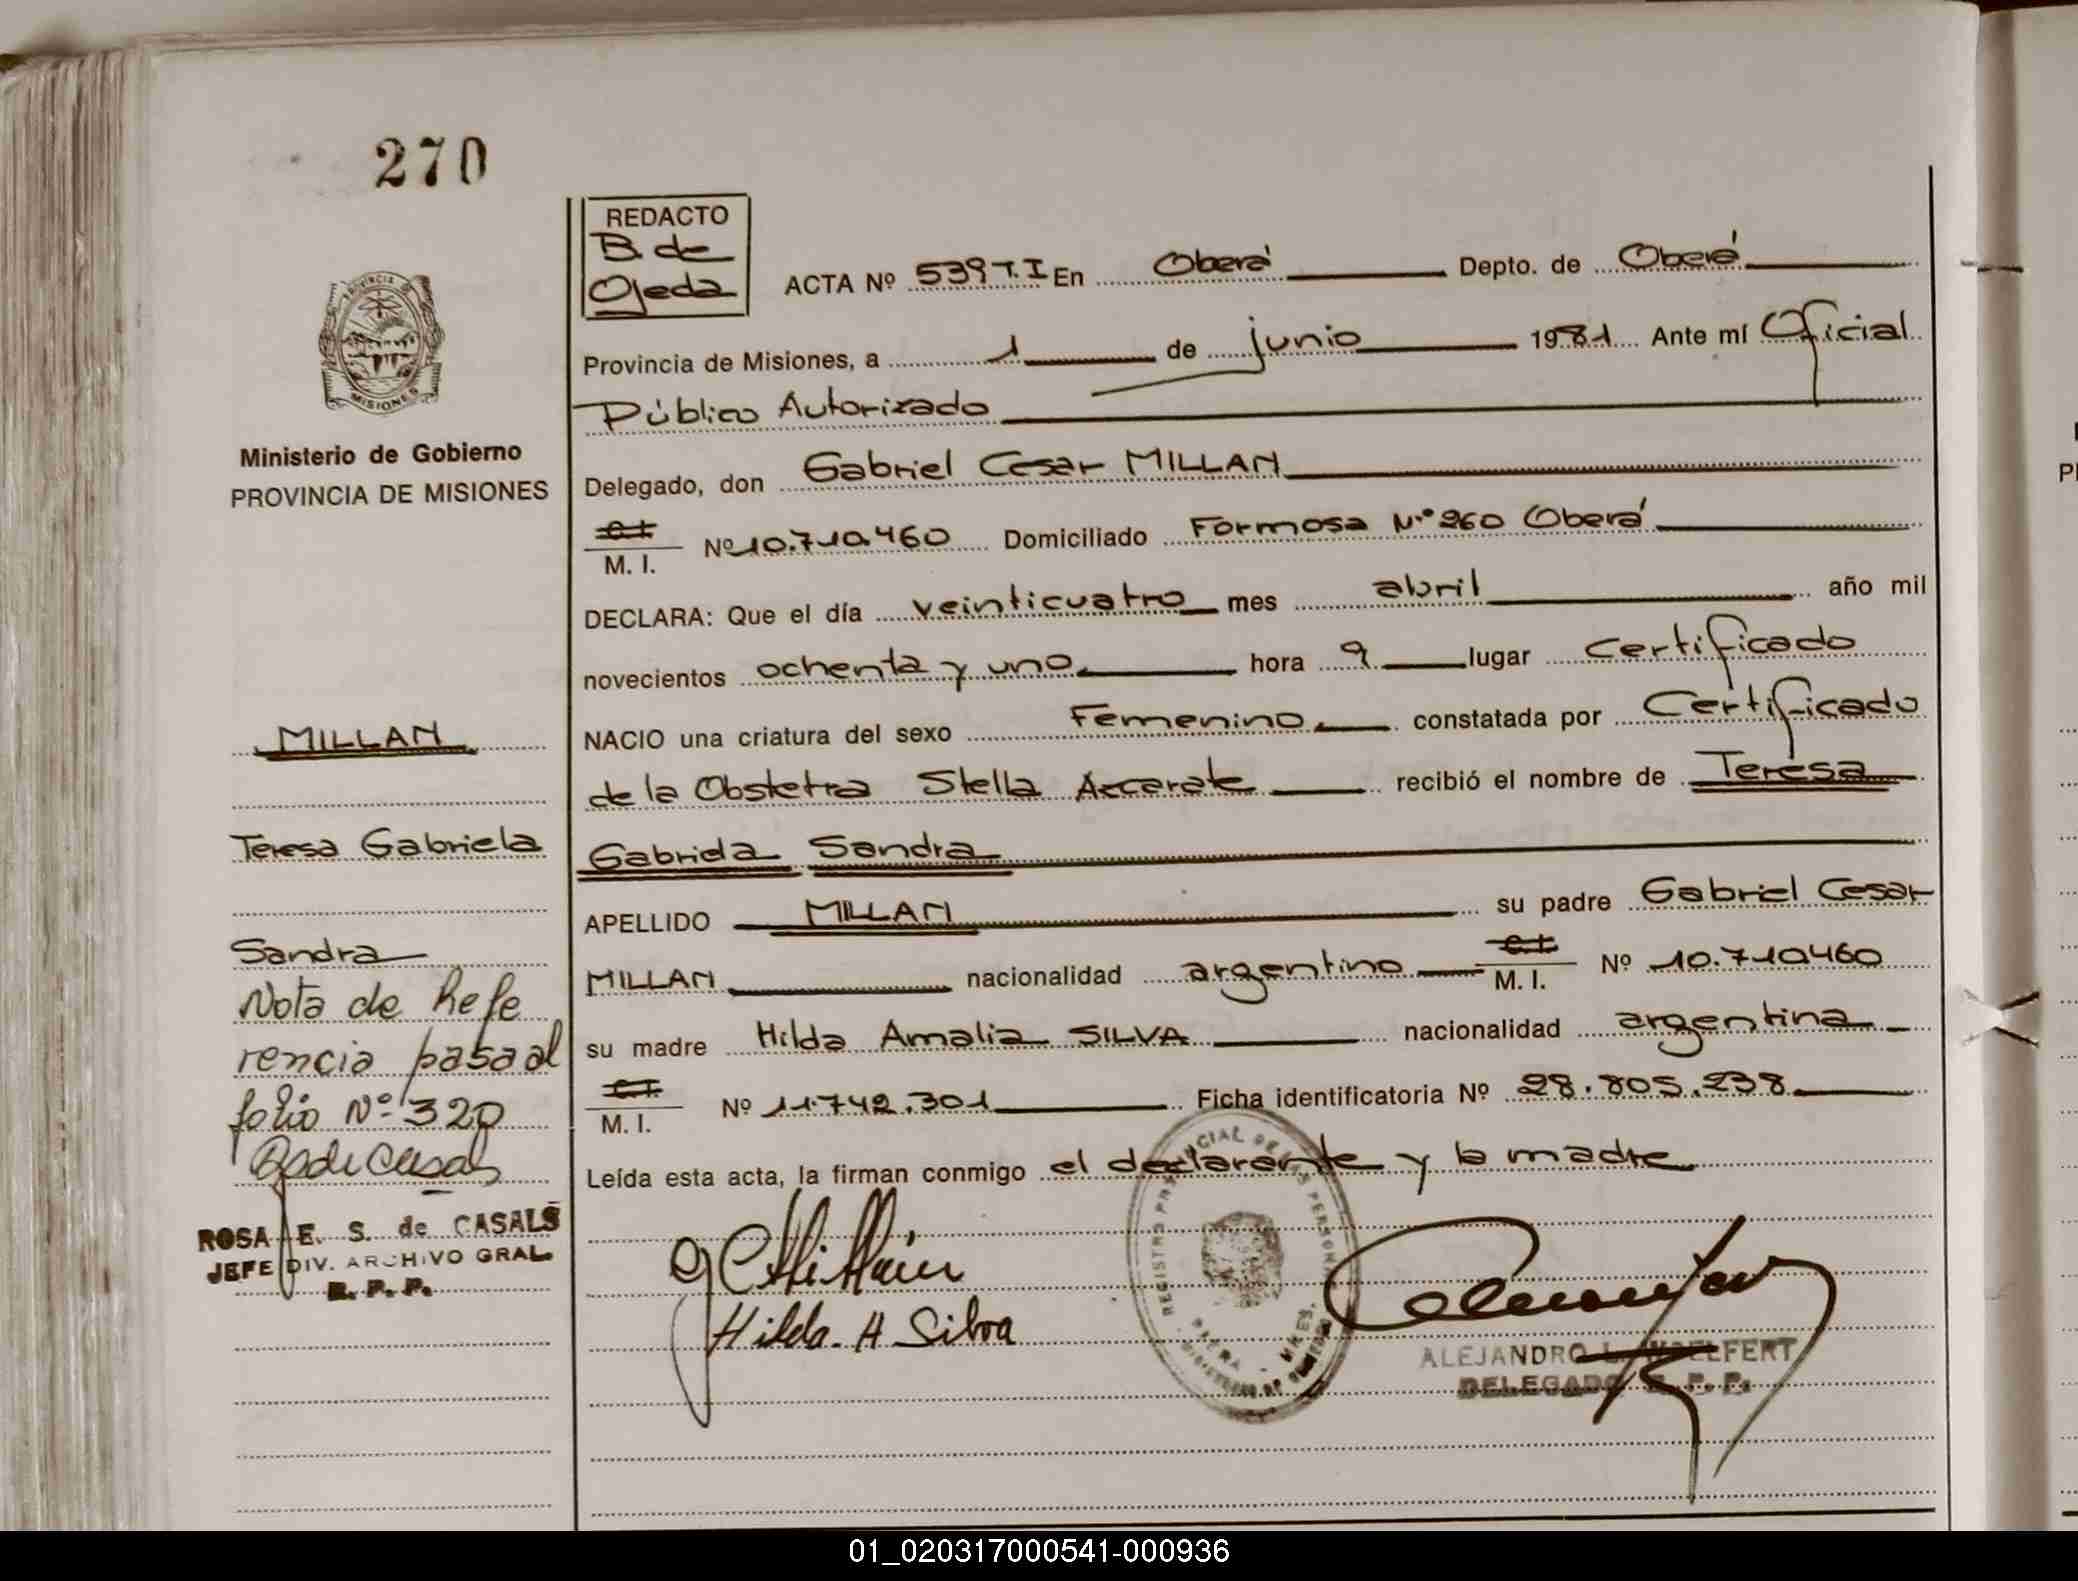 270
REDACTO
B. de
Ojeda
ACTA Nº 539 T.I En Oberá Depto. de Oberá
Provincia de Misiones, a 1 de junio 1981 Ante mí Oficial
Público Autorizado
Delegado, don Gabriel Cesar MILLAN
C.I.
M. I. Nº 10.710.460 Domiciliado Formosa Nº 260 Oberá
DECLARA: Que el día veinticuatro mes abril año mil
novecientos ochenta y uno hora 9 lugar Certificado
NACIO una criatura del sexo Femenino constatada por Certificado
de la Obstetra Stella Azcarate recibió el nombre de Teresa
Gabriela Sandra
APELLIDO MILLAN su padre Gabriel Cesar
MILLAN nacionalidad argentino C.I. M. I. Nº 10.710460
su madre Hilda Amalia SILVA nacionalidad argentina
C.I.
M. I. Nº 11.742.301 Ficha identificatoria Nº 28.805.238
Leída esta acta, la firman conmigo el declarante y la madre
G C Millán
Hilda. A Silva
REGISTRO PROVINCIAL DE LAS PERSONAS
ALEJANDRO L. WOELFERT
DELEGADO R. P. P.
PROVINCIA DE
MISIONES
Ministerio de Gobierno
PROVINCIA DE MISIONES
MILLAN
Teresa Gabriela
Sandra
Nota de Refe
rencia pasa al
folio Nº 320
ROSA E. S. de CASALS
JEFE DIV. ARCHIVO GRAL.
R. P. P.
01_020317000541-000936